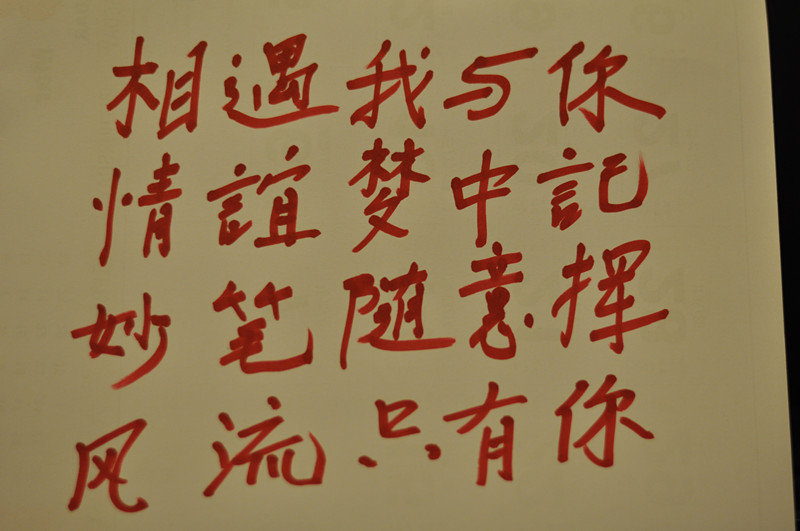 相遇我与你
情誼梦中記
妙笔随意挥
风流只有你